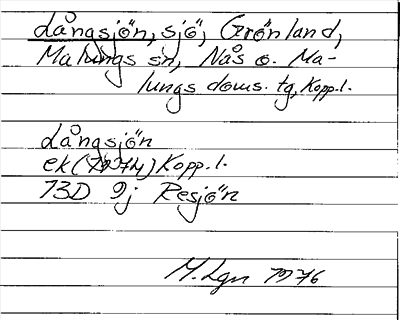 Långsjön, sjö, Grönland,
Malungs sn, Nås o. Ma-
lungs doms. tg, Kopp.l.
Långsjön
ek (1974) Kopp.l.
13D 9j Resjön
M.Lgn 1976